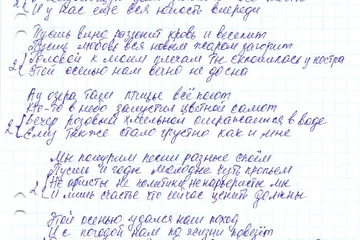 И у нас ещё вся юность впереди
Пусть вино разгонит кровь и веселит
Пусть любовь вся новым жаром загорит
2 Головой к моим плечам ты склонилась у костра
Этой осенью нам вечно не до сна
Ау озера, таги птицы всё поют
Кто-то в небо запустил цветной салют
2 Вечер розовый хмельной отражается в воде
Ему также стало грустно как и мне
Мы пошумим песни разные споём
Пусть и годы молодые чуть пропьём
2 Не артисты не политики не карьеристы мы
И лишь счастье что сейчас ценить должны
Этой осенью удался нам поход
И с погодой нам по жизни повезёт